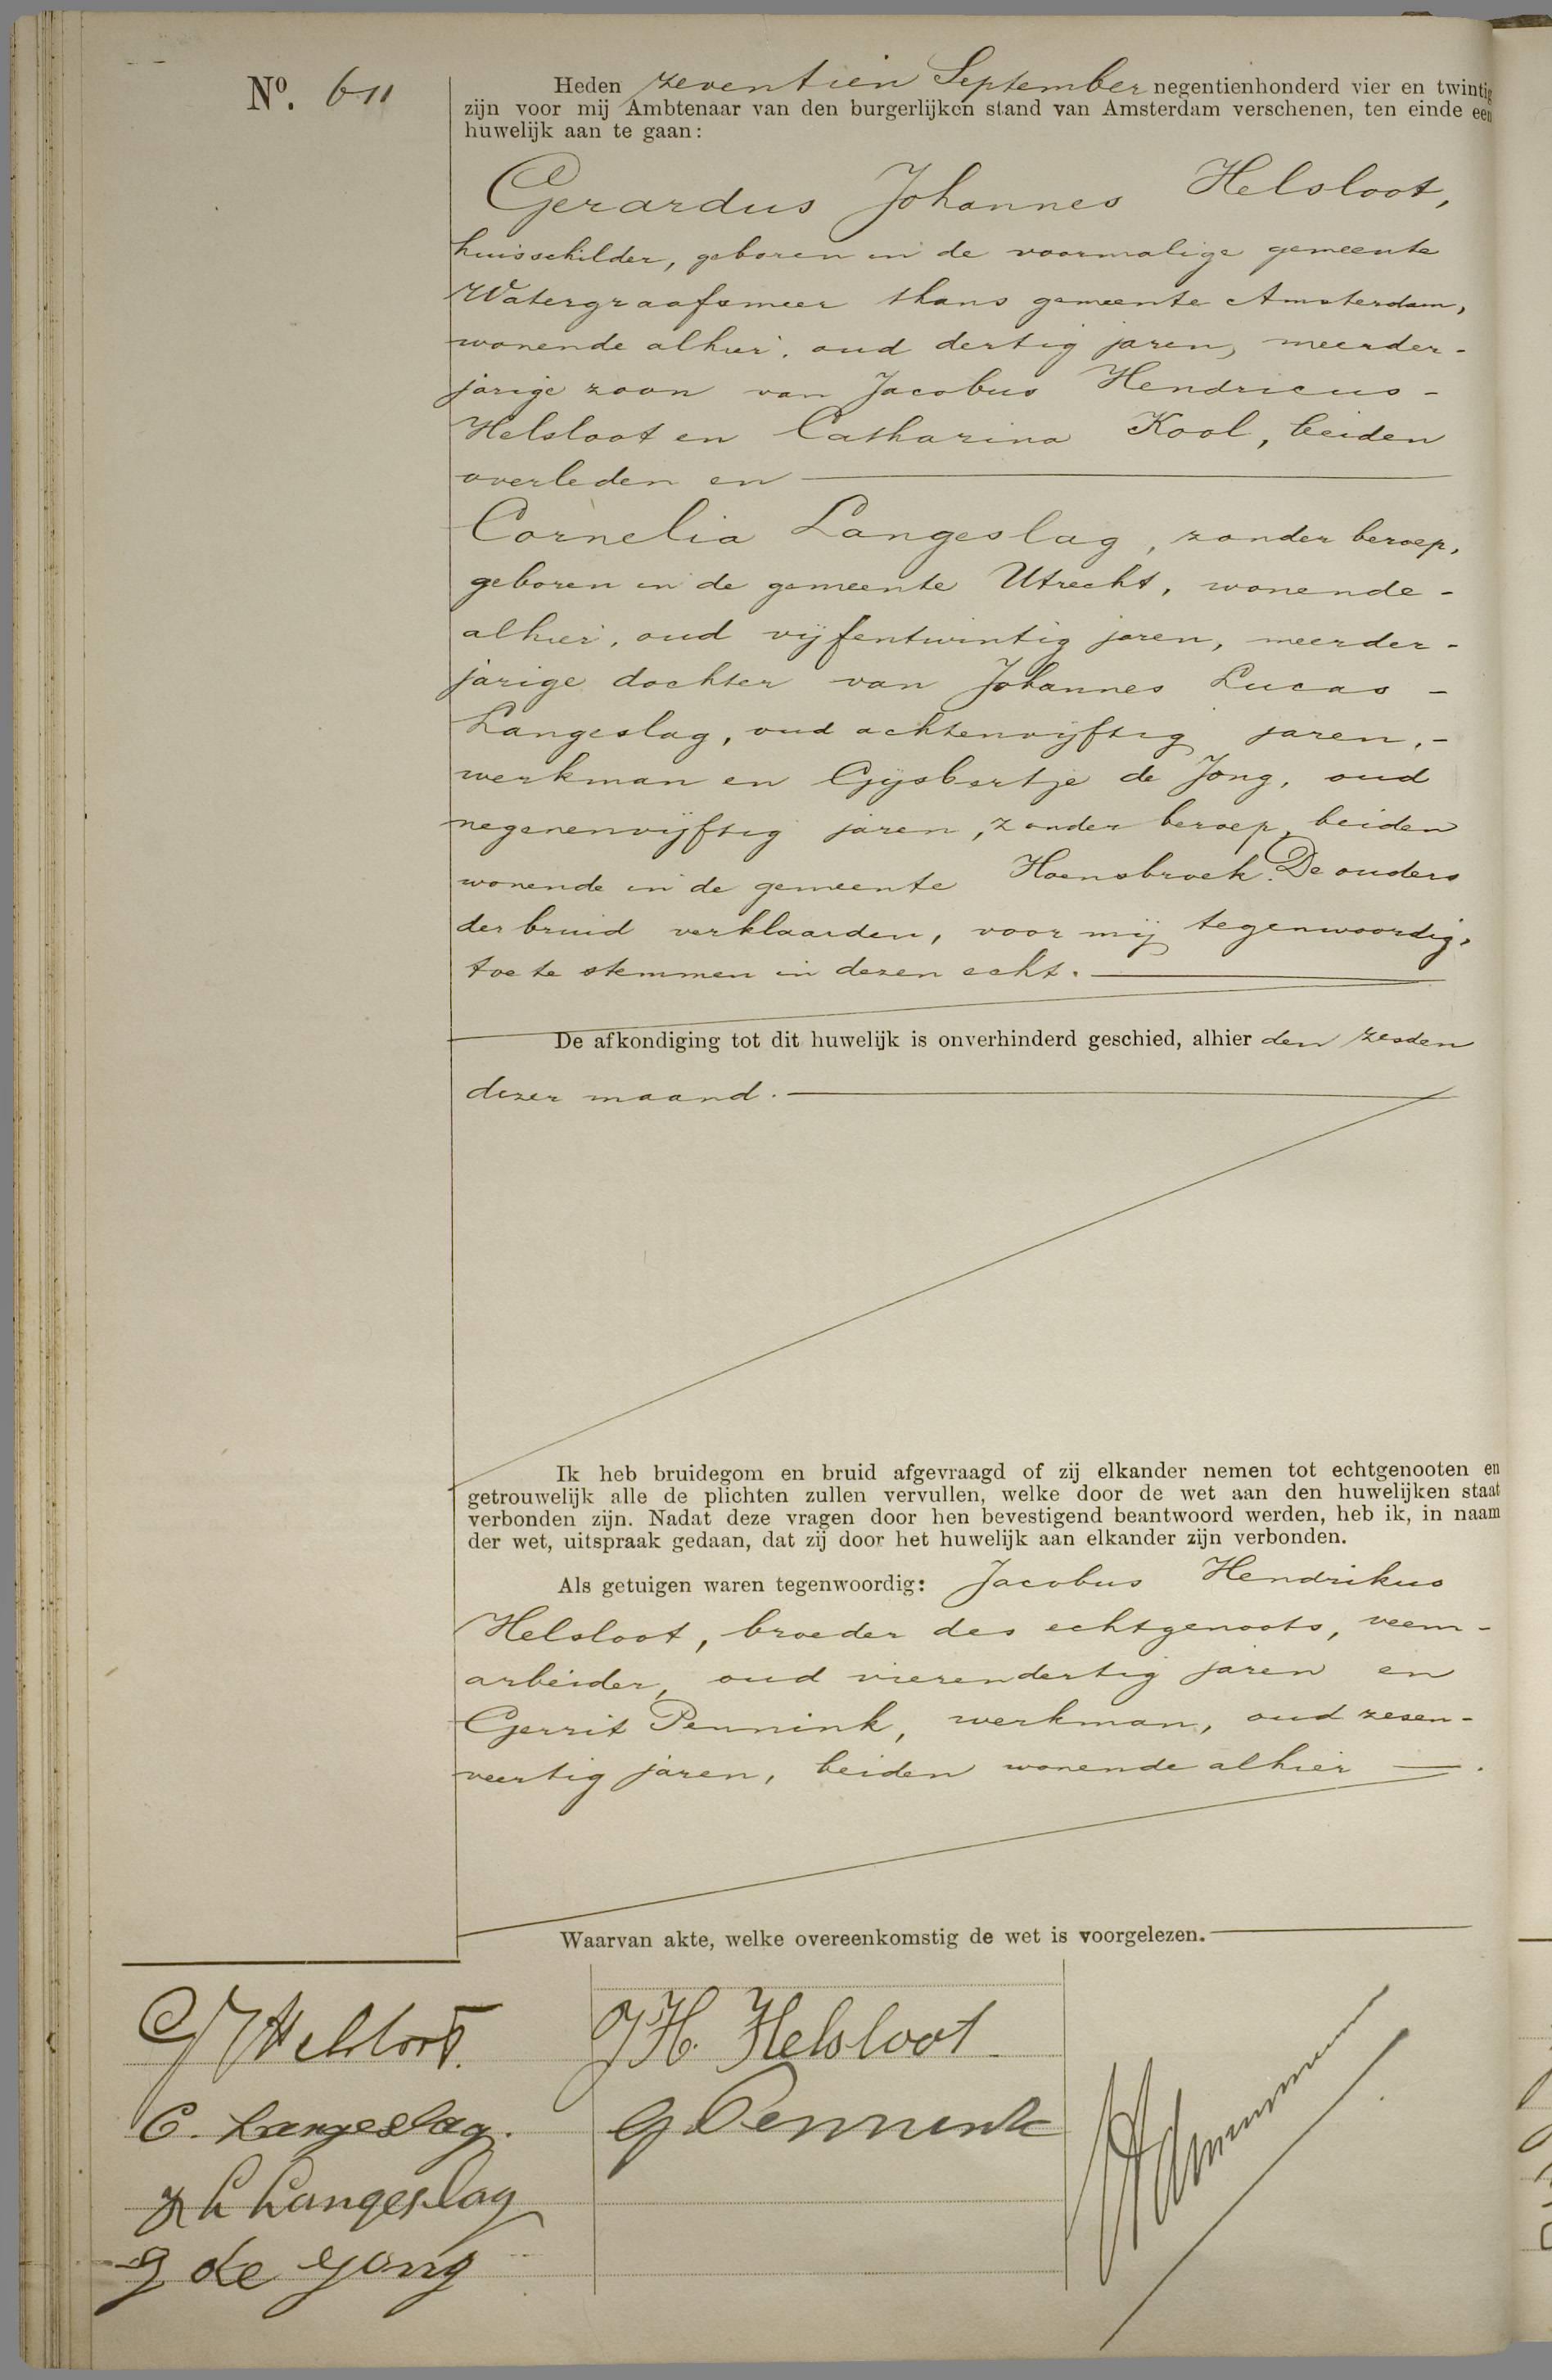 Nº. 611
Heden zeventien September negentienhonderd vier en twintig
zijn voor mij Ambtenaar van den burgerlijken stand van Amsterdam verschenen, ten einde een
huwelijk aan te gaan:
Gerardus Johannes Helsloot,
huisschilder, geboren in de voormalige gemeente
Watergraafsmeer thans gemeente Amsterdam,
wonende alhier, oud dertig jaren, meerder-
jarige zoon van Jacobus Hendricus -
Helsloot en Catharina Kool, beiden
overleden en
Cornelia Langeslag, zonder beroep,
geboren in de gemeente Utrecht, wonende -
alhier, oud vijfentwintig jaren, meerder-
jarige dochter van Johannes Lucas -
Langeslag, oud achtenvijftig jaren, -
werkman en Gijsbertje de Jong, oud
negenenvijftig jaren, zonder beroep, beiden
wonende in de gemeente Hoensbroek. De ouders
der bruid verklaarden, voor mij tegenwoordig,
toe te stemmen in dezen echt.
De afkondiging tot dit huwelijk is onverhinderd geschied, alhier den zesden
dezer maand.
Ik heb bruidegom en bruid afgevraagd of zij elkander nemen tot echtgenooten en
getrouwelijk alle de plichten zullen vervullen, welke door de wet aan den huwelijken staat
verbonden zijn. Nadat deze vragen door hen bevestigend beantwoord werden, heb ik, in naam
der wet, uitspraak gedaan, dat zij door het huwelijk aan elkander zijn verbonden.
Als getuigen waren tegenwoordig: Jacobus Hendrikus
Helsloot, broeder des echtgenoots, veem-
arbeider, oud vierendertig jaren en
Gerrit Pennink, werkman, oud zesen-
veertig jaren, beiden wonende alhier -.
Waarvan akte, welke overeenkomstig de wet is voorgelezen.
GJ Helsloot.
C. Langeslag.
J L Langeslag
g de Jong
JH. Helsloot
G Pennink